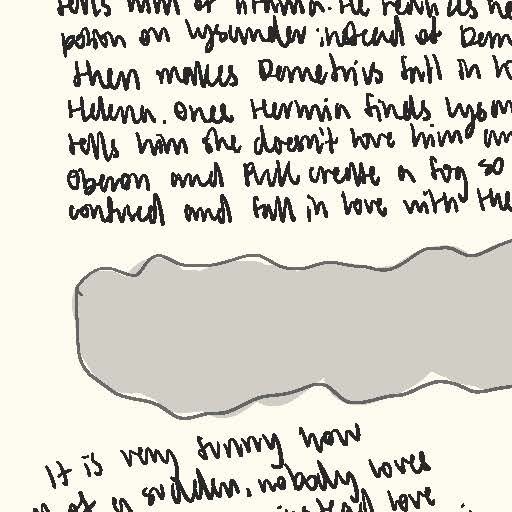 tells him of Hermia. He realizes he
potion on Lysander instead of Dem
then makes Demetrius fall in lo
Helena. Once Hermia finds Lysan
tells him she doesn't love him an
Oberon and Puck create a fog so
confused and fall in love with the
It is very funny how
of a sudden, nobody loves
instead love